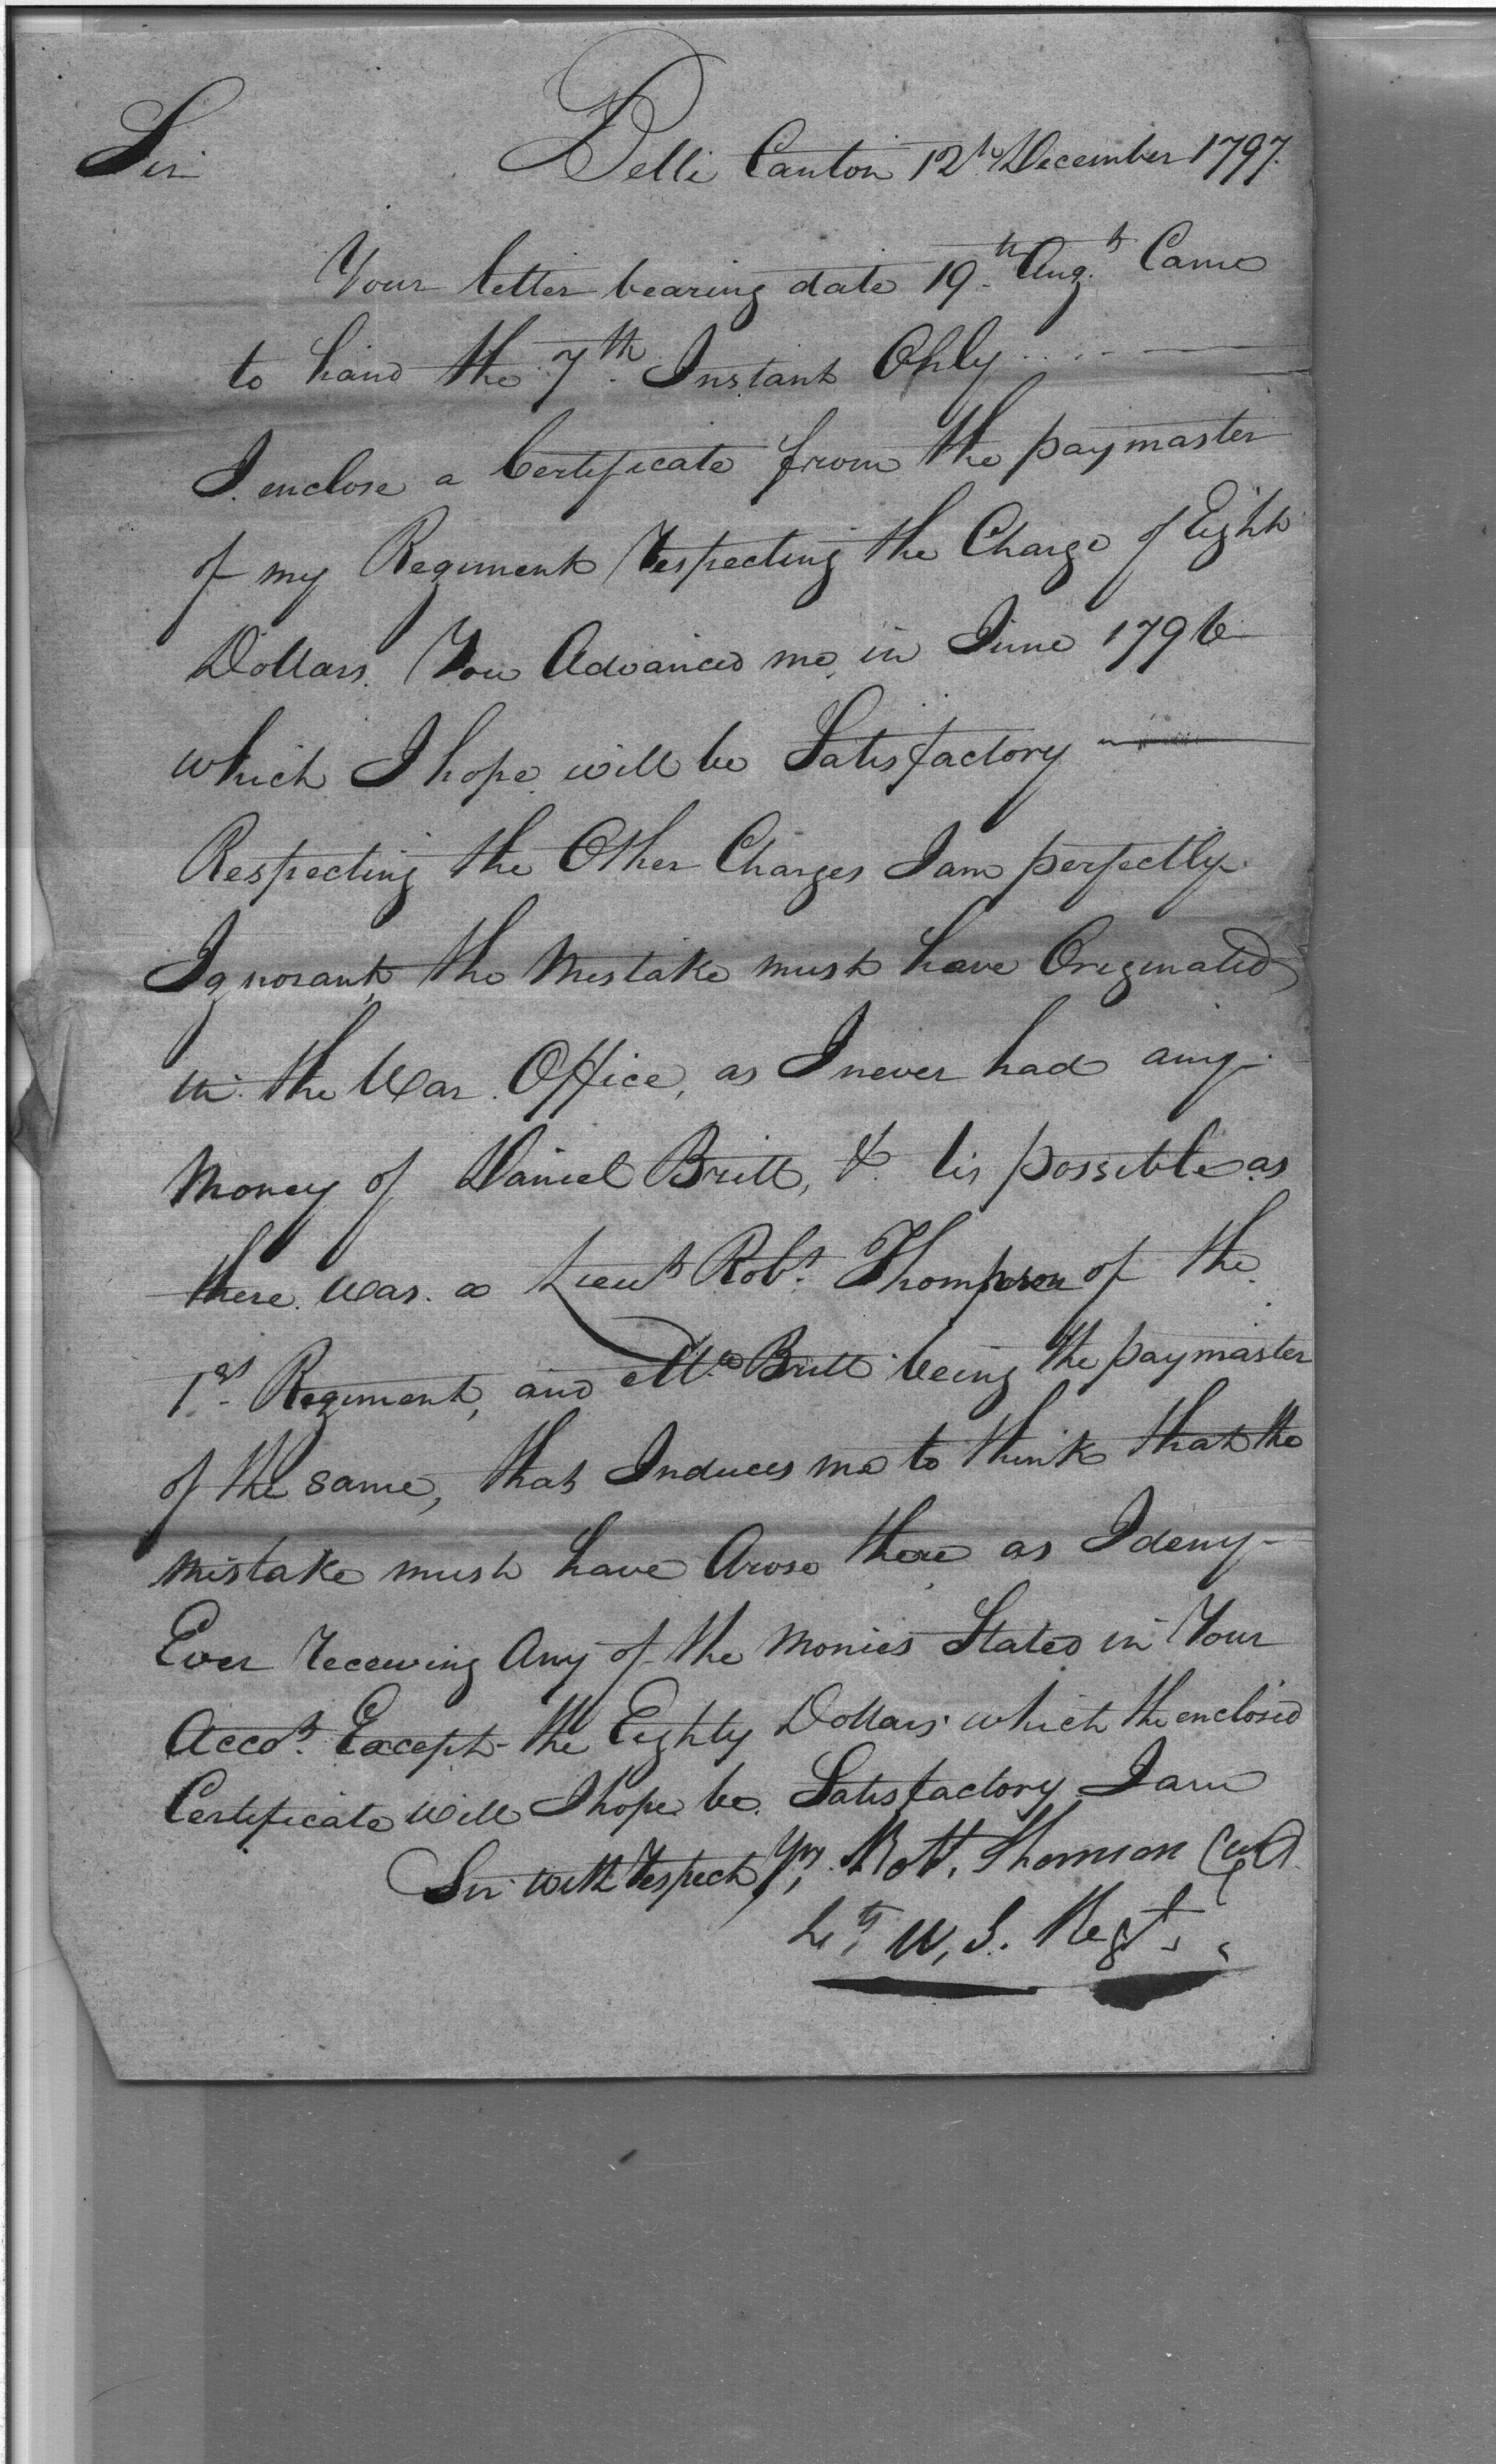 Sir
Belli Canton 12th December 1797.
Your letter bearing date 19th Augt Came
to hand the 7th Instant Only
I enclose a Certificate from the paymaster
of my Regiment Respecting the Charge of Eight
Dollars You Advanced me in June 1796
which I hope will be Satisfactory
Respecting the Other Charges I am perfectly
Ignorant, the Mistake must have Originated
in the War Office, as I never had any
Money of Daniel Britt, & tis possible as
there was a Lieut Robt Thompson of the
1st Regiment, and Mr Britt being the paymaster
of the same, that Induces me to think that the
mistake must have Arose there as I deny
Ever Receiving Any of the Monies Stated in Your
Accot Except the Eighty Dollars which the enclosed
Certificate will I hope be Satisfactory I am
Sir with Respect Yrs, Robt. Thomson
Lt, U, S. Regt,